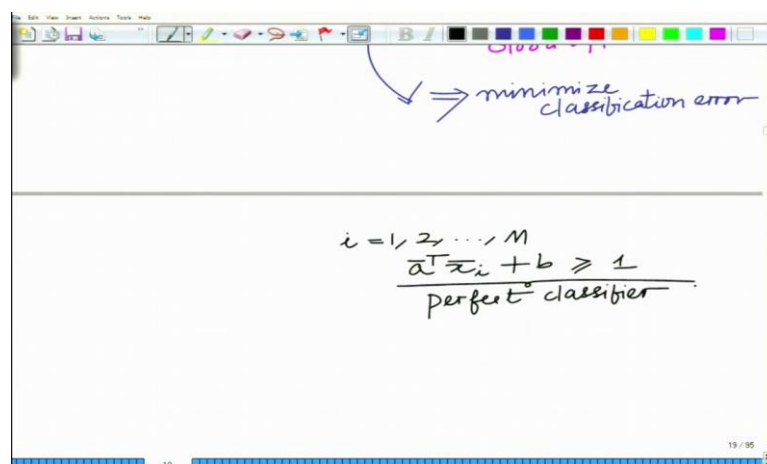 File Edit View Insert Actions Tools Help
B I
⇒ minimize
classification error
i = 1, 2, ..., M
a̅ᵀ x̅ᵢ + b ≥ 1
perfect classifier
19 / 95